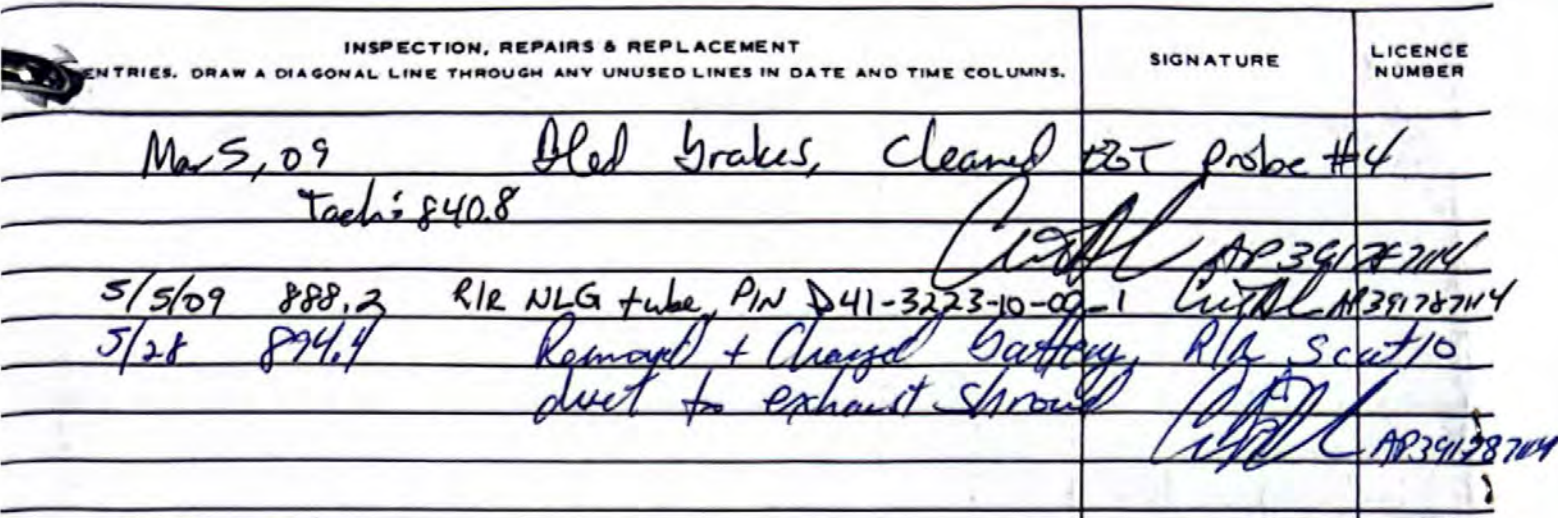 INSPECTION, REPAIRS & REPLACEMENT
ENTRIES. DRAW A DIAGONAL LINE THROUGH ANY UNUSED LINES IN DATE AND TIME COLUMNS.
SIGNATURE
LICENCE NUMBER
Mar 5, 09 Bled brakes, Cleaned EGT probe #4
Tach: 840.8
AP391787114
5/5/09 888.2 R/R NLG tube, P/N D41-3223-10-00-1 AP391787114
5/28 894.4 Removed + Charged battery, R/R scat 10
duct to exhaust shroud
AP391787114